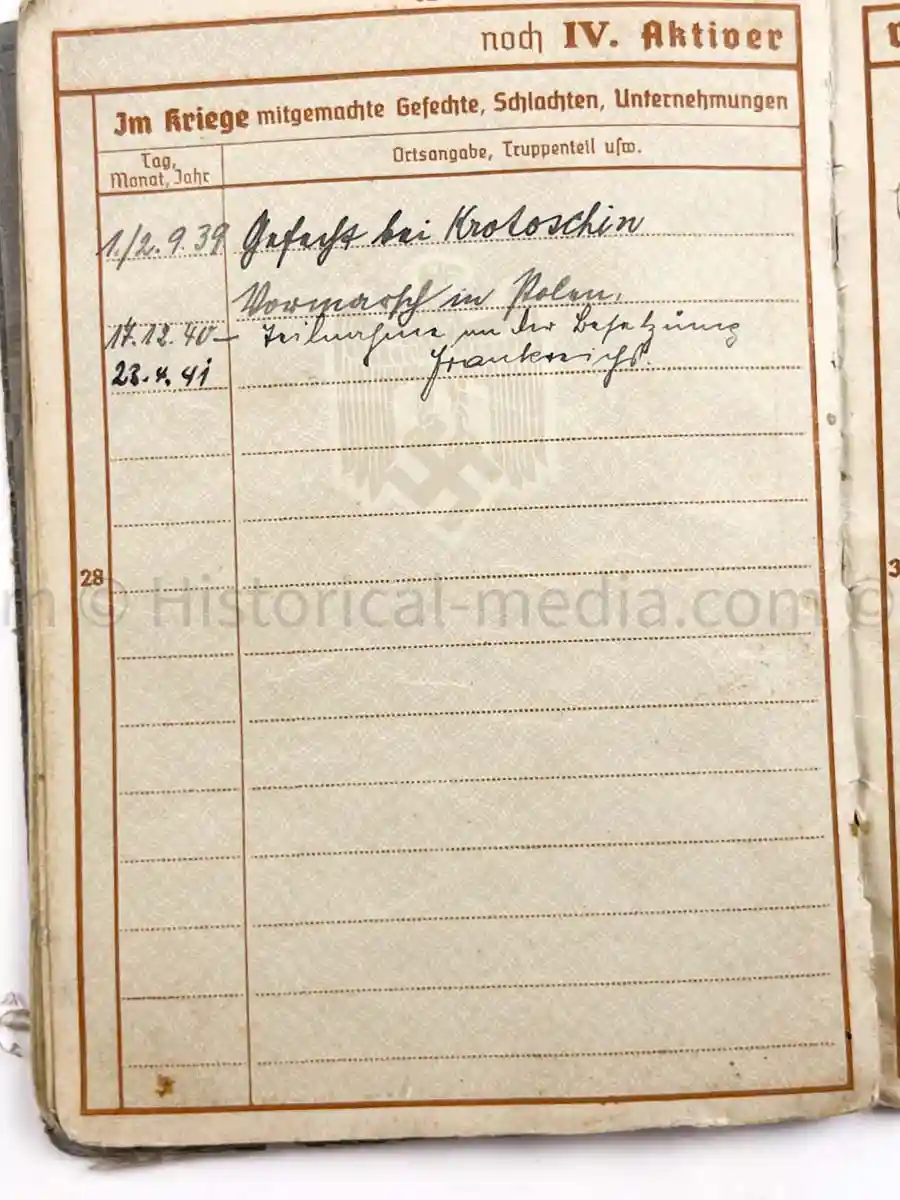 noch IV. Aktiver
Im Kriege mitgemachte Gefechte, Schlachten, Unternehmungen
Tag,
Monat, Jahr
Ortsangabe, Truppenteil usw.
1./2.9.39 Gefecht bei Krotoschin
Vormarsch in Polen.
17.12.40– Teilnahme an der Besetzung
23.4.41 Frankreichs.
28
m © Historical-media.com ©
3